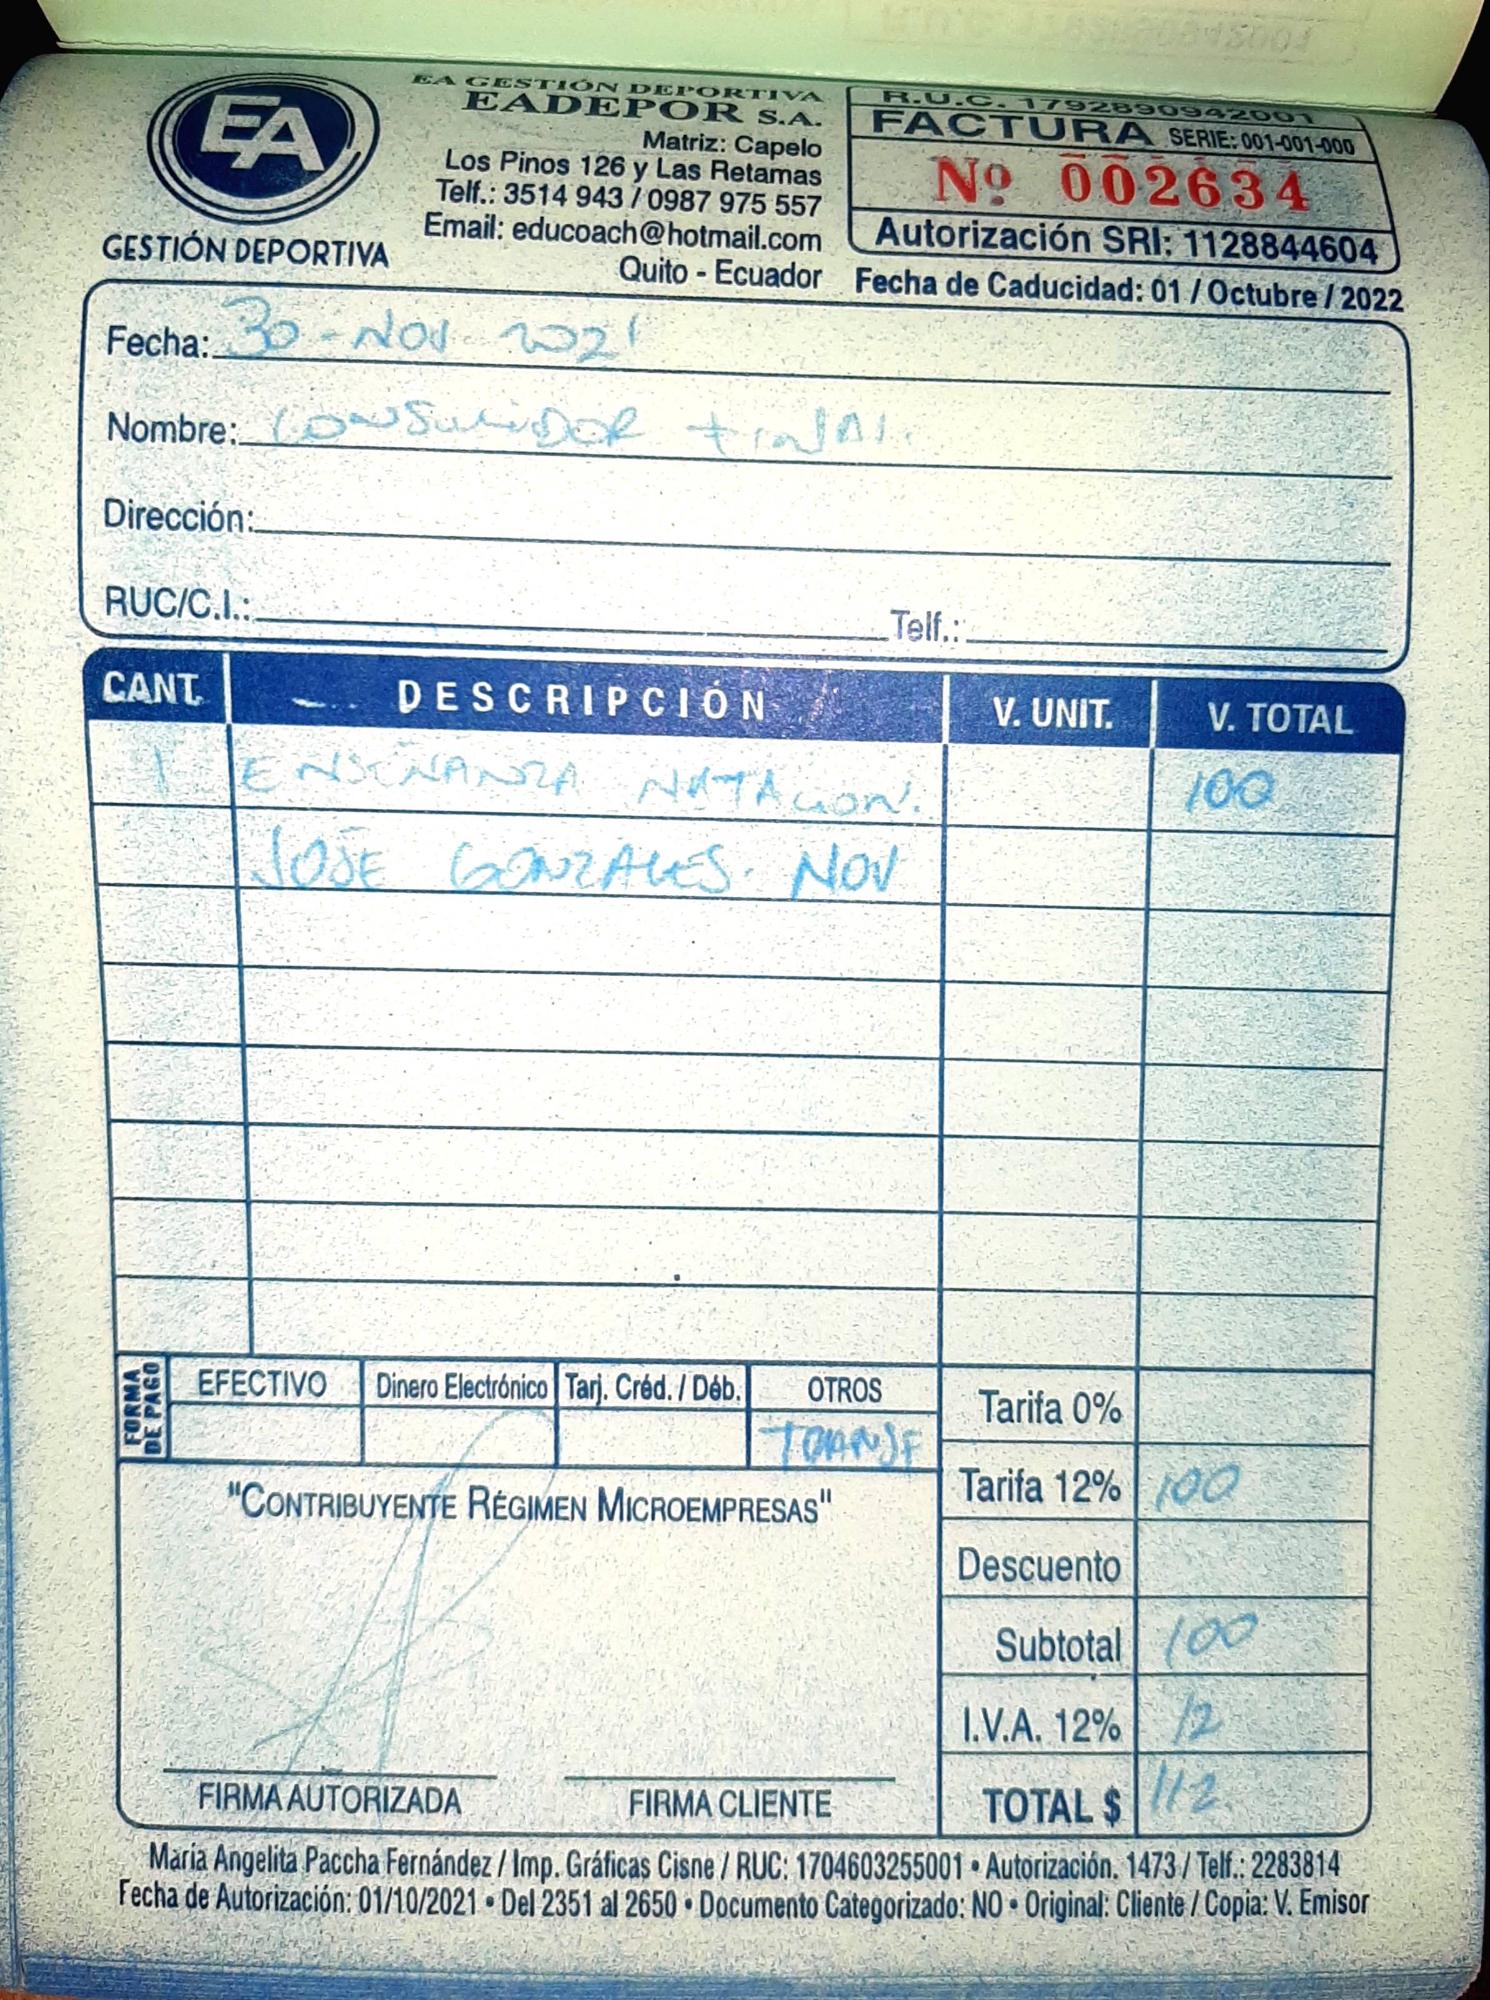 EA
GESTIÓN DEPORTIVA
EA GESTIÓN DEPORTIVA
EADEPOR S.A.
Matriz: Capelo
Los Pinos 126 y Las Retamas
Telf.: 3514 943 / 0987 975 557
Email: educoach@hotmail.com
Quito - Ecuador
R.U.C. 1792890942001
FACTURA SERIE: 001-001-000
Nº 002634
Autorización SRI: 1128844604
Fecha de Caducidad: 01 / Octubre / 2022
Fecha: 30-NOV-2021
Nombre: CONSUMIDOR FINAL.
Dirección:
RUC/C.I.: Telf.:
CANT. DESCRIPCIÓN V. UNIT. V. TOTAL
1 ENSEÑANZA NATACION. 100
JOSE GONZALES. NOV
FORMA DE PAGO
EFECTIVO Dinero Electrónico Tarj. Créd. / Déb. OTROS
TRANSF
Tarifa 0%
Tarifa 12% 100
Descuento
Subtotal 100
I.V.A. 12% 12
TOTAL $ 112
"CONTRIBUYENTE RÉGIMEN MICROEMPRESAS"
FIRMA AUTORIZADA FIRMA CLIENTE
María Angelita Paccha Fernández / Imp. Gráficas Cisne / RUC: 1704603255001 • Autorización. 1473 / Telf.: 2283814
Fecha de Autorización: 01/10/2021 • Del 2351 al 2650 • Documento Categorizado: NO • Original: Cliente / Copia: V. Emisor